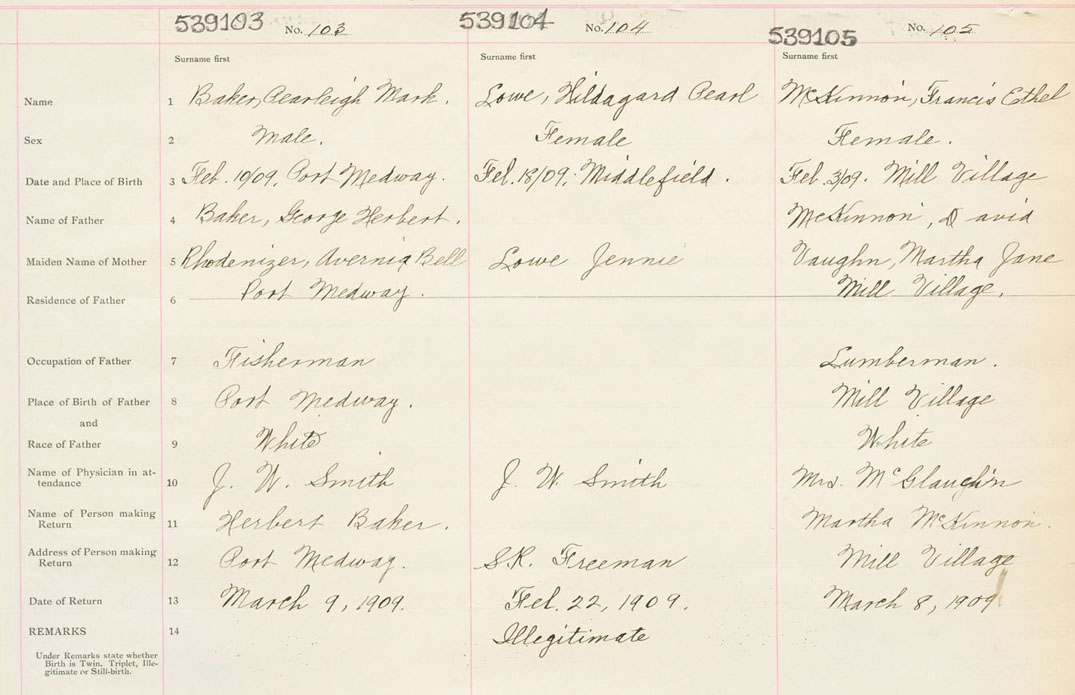 539103 No. 103 539104 No. 104 539105 No. 105
Surname first Surname first Surname first
Name 1 Baker, Pearleigh Mark. Lowe, Hildagard Pearl McKinnon, Francis Ethel
Sex 2 Male. Female Female.
Date and Place of Birth 3 Feb. 10/09. Port Medway. Feb. 18/09. Middlefield. Feb. 3/09. Mill Village
Name of Father 4 Baker, George Herbert. McKinnon, David
Maiden Name of Mother 5 Rhodenizer, Avernia Bell Lowe Jennie Vaughn, Martha Jane
Residence of Father 6 Port Medway. Mill Village.
Occupation of Father 7 Fisherman Lumberman.
Place of Birth of Father 8 Port Medway. Mill Village
and
Race of Father 9 White White
Name of Physician in at-
tendance 10 J. W. Smith J. W. Smith Mrs. McGlaughin
Name of Person making
Return 11 Herbert Baker. Martha McKinnon.
Address of Person making
Return 12 Port Medway. S.R. Freeman Mill Village
Date of Return 13 March 9, 1909. Feb. 22, 1909. March 8, 1909
REMARKS 14 Illegitimate
Under Remarks state whether
Birth is Twin. Triplet, Ille-
gitimate or Still-birth.